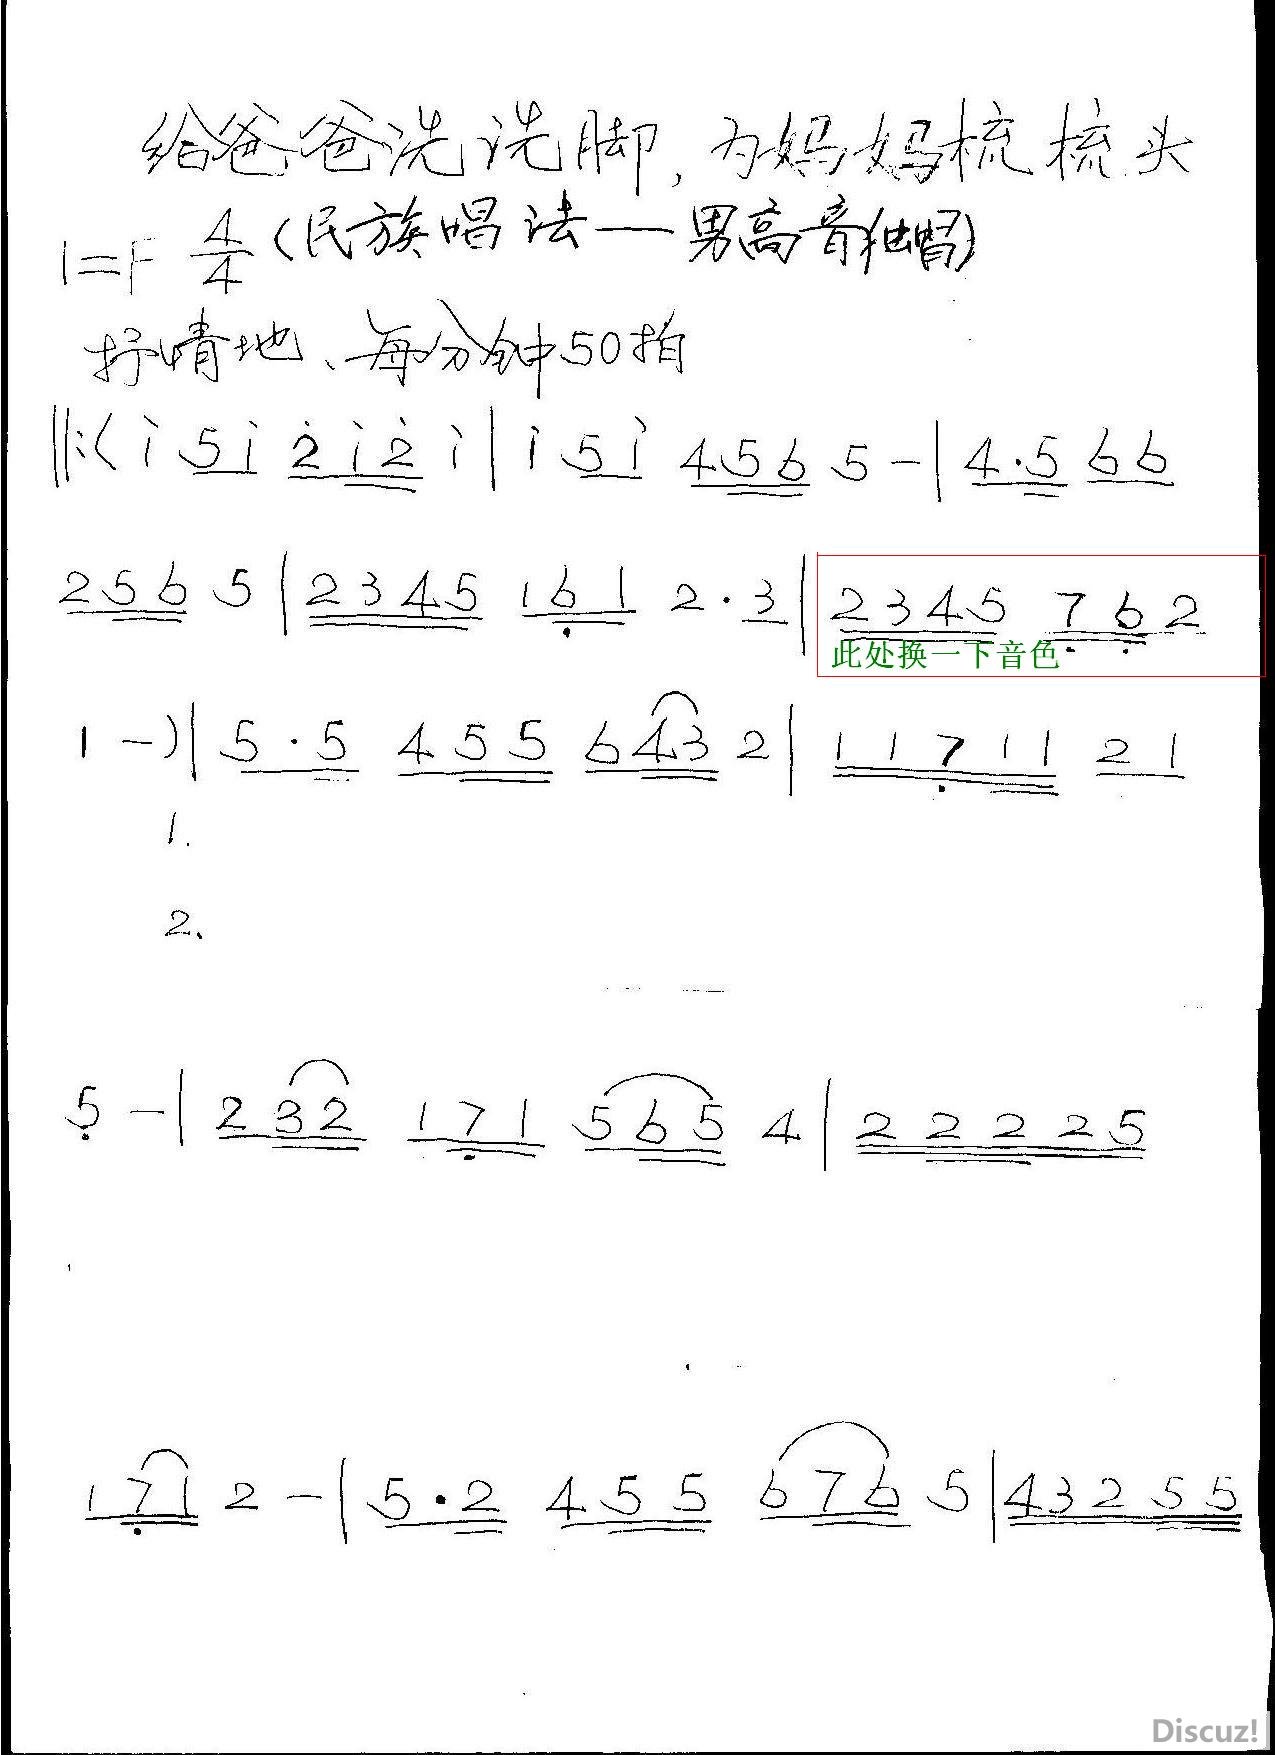 给爸爸洗洗脚,为妈妈梳梳头
1=F 4/4 (民族唱法—男高音独唱)
抒情地、每分钟50拍
‖:( i 5 i 2̇ i 2̇ i | i 5 i 4 5 6 5 - | 4 · 5 6 6
2 5 6 5 | 2 3 4 5 1 6̣ 1 2 · 3 | 2 3 4 5 7̣ 6̣ 2
此处换一下音色
1 - ) | 5 · 5 4 5 5 6 4 3 2 | 1 1 7̣ 1 1 2 1
1.
2.
5̣ - | 2 3 2 1 7̣ 1 5 6 5 4 | 2 2 2 2 5
1 7̣ 1 2 - | 5 · 2 4 5 5 6 7 6 5 | 4 3 2 5 5
Discuz!